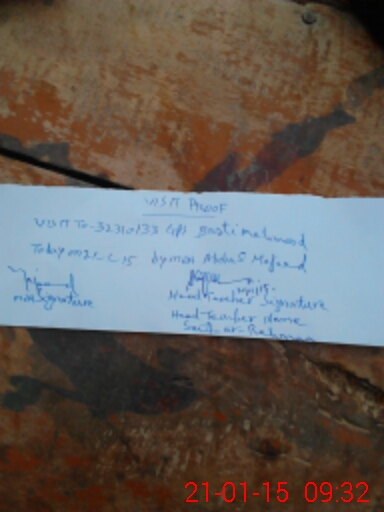 VISIT PROOF
VISIT To-32310133 GPS Basti mehmood
Today on 21-1-15 by mea Abdul Majeed
mea Signature
Head Teacher Signature
Head-Teacher Name
Saif-ur-Rehman
21-01-15 09:32